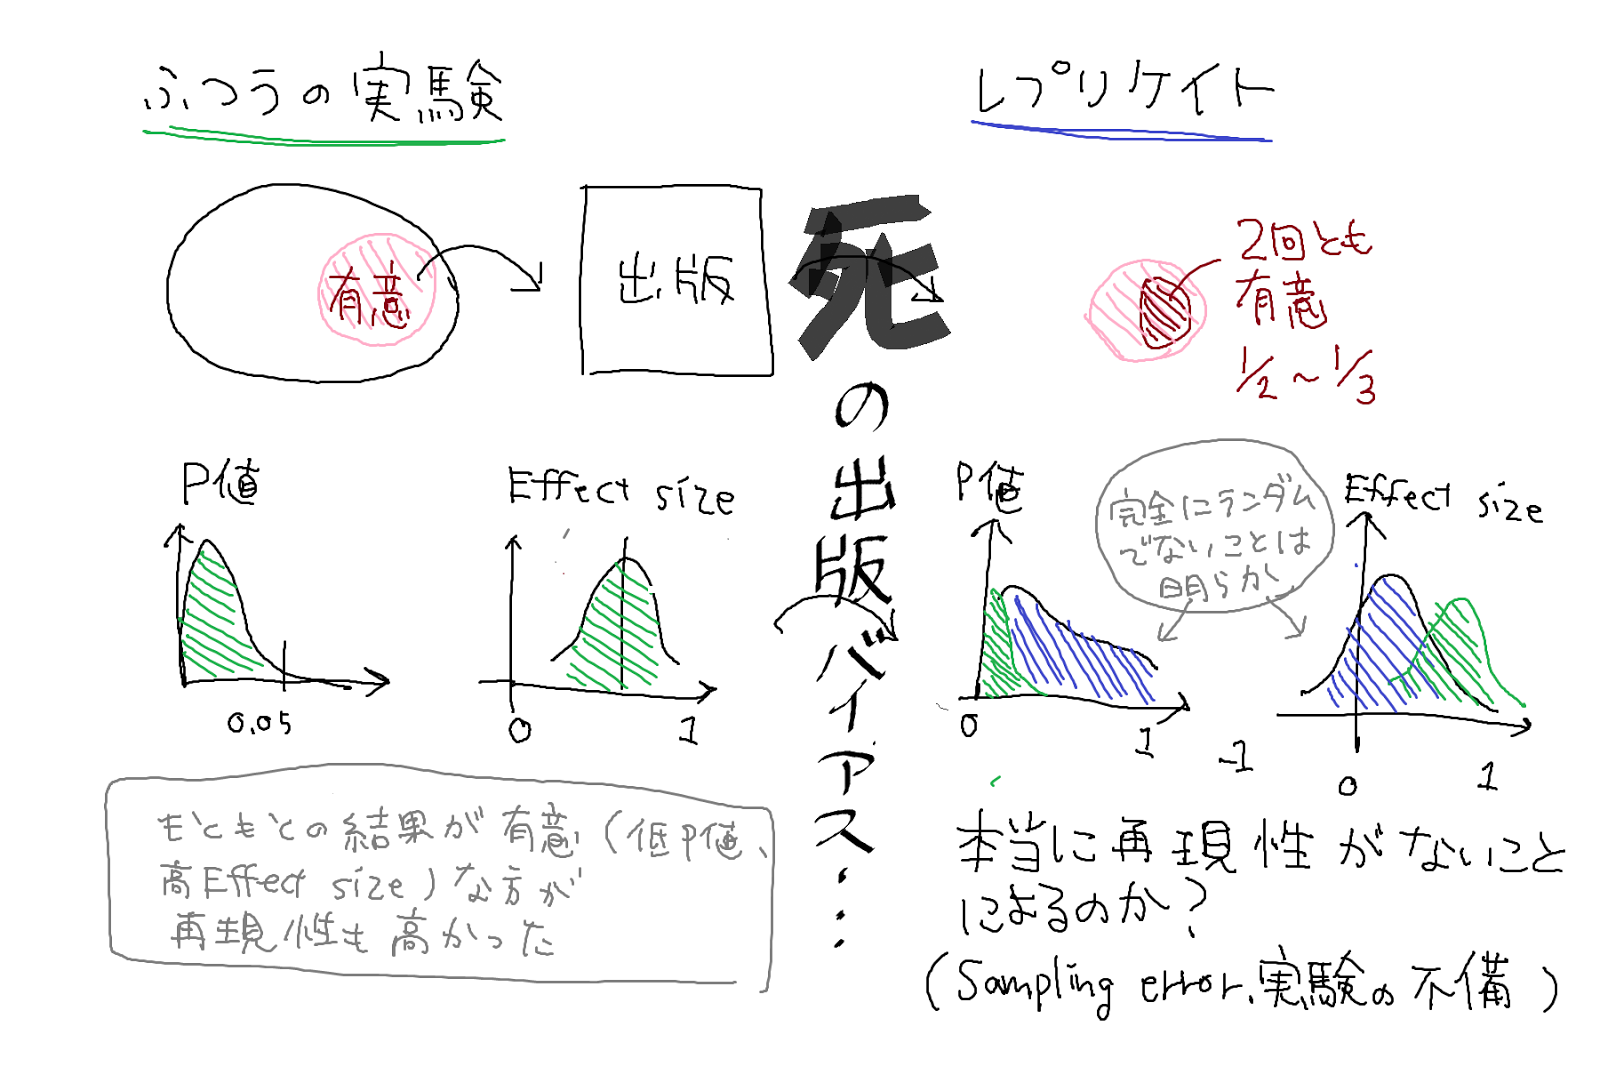 ふつうの実験
有意
出版
P値
0.05
Effect size
0
1
もともとの結果が有意(低P値、
高Effect size)な方が
再現性も高かった
死の出版バイアス・・・
レプリケイト
2回とも
有意
1/2~1/3
P値
0
1
完全にランダム
でないことは
明らか
Effect size
-1
0
1
本当に再現性がないこと
によるのか?
(Sampling error、実験の不備)